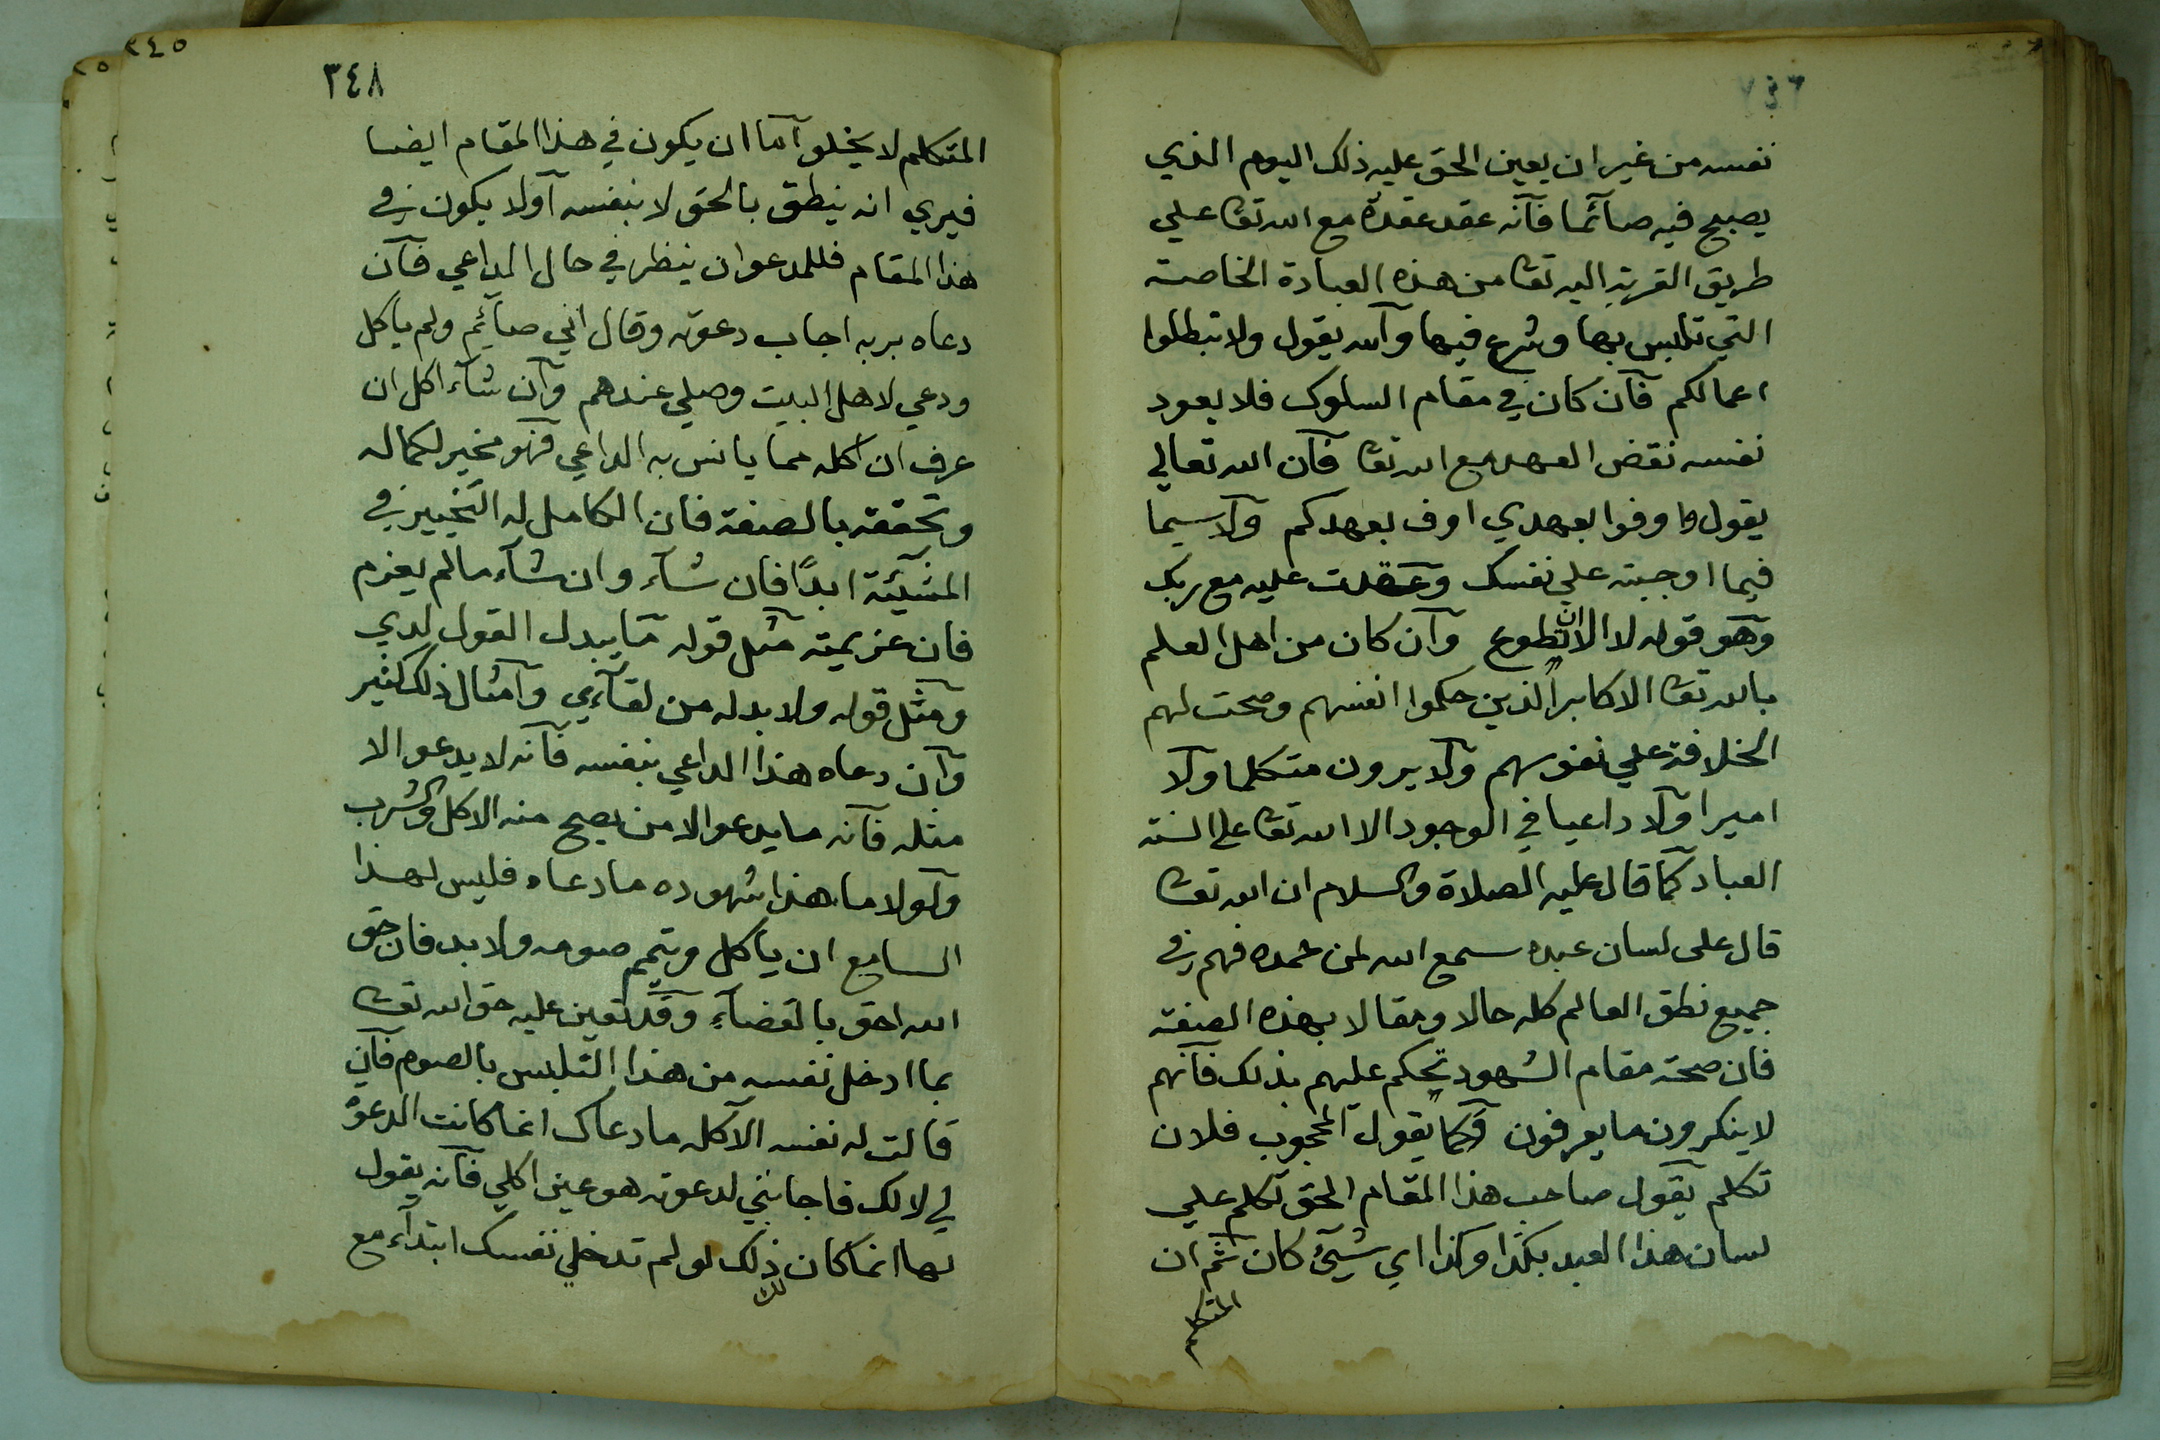 نفسه من غير ان يعين الحق عليه ذلك اليوم الذي
يصبح فيه صآئما فآنه عقد عقدة مع الله تعا علي
طريق القربة اليه تعا من هذه العبادة الخاصة
التي تلبس بها وشرع فيها والله يقول ولا تبطلوا
اعمالكم فآن كان في مقام السلوك فلا يعود
نفسه نقض العهد مع الله تعا فآن الله تعالي
يقول واوفوا بعهدي اوف بعهدكم ولآ سيما
فيما اوجبته علي نفسك وعقدت عليه مع ربك
وهو قوله لا الا ان تطوع وآن كان من اهل العلم
بالله تعا الاكابر الذين حكموا انفسهم وصحت لهم
الخلافة علي نفوسهم ولآ يرون متكلما ولآ
اميرا ولآ داعيا في الوجود الا الله تعا على السنة
العباد كما قال عليه الصلاة والسلام ان الله تعا
قال على لسان عبده سمع الله لمن حمده فهم في
جميع نطق العالم كله حالا ومقالا بهذه الصفة
فان صحة مقام الشهود تحكم عليهم بذلك فآنهم
لا ينكرون ما يعرفون فكما يقول المحجوب فلان
تكلم يقول صاحب هذا المقام الحق تكلم علي
لسان هذا العبد بكذا وكذا اي شيئ كان ثم ان
المتكلم
٣٤٨
المتكلم لا يخلو آما ان يكون في هذا المقام ايضا
فيري انه ينطق بالحق لا بنفسه آولا يكون في
هذا المقام فللمدعو ان ينظر في حال الداعي فآن
دعاه بربه اجاب دعوته وقال اني صآئم ولم ياكل
ودعي لاهل البيت وصلي عندهم وآن شآء اكل ان
عرف ان اكله مما يانس به الداعي فهو مخير لكماله
وتحققه بالصفة فان الكامل له التخيير في
المشيئة ابدًا فان شآء وان شآء ما لم يعزم
فان عزيمته مثل قوله ما يبدل القول لدي
ومثل قوله ولا بد له من لقآءي وآمثال ذلك كثير
وآن دعاه هذا الداعي بنفسه فآنه لا يدعو الا
مثله فآنه ما يدعو الا من يصح منه الاكل والشرب
ولولا ما هذا شهوده ما دعاه فليس لهذا
السامع ان يأكل ويتمم صومه ولا بد فان حق
الله احق بالقضآء وقد تعين عليه حق الله تعا
بما ادخل نفسه من هذا التلبس بالصوم فآن
قالت له نفسه الآكله ما دعاك انما كانت الدعوة
لي لا لك فاجابتي لدعوته هو عين اكلي فآنه يقول
لها انما كان ذلك لو لم تدخلي نفسك ابتدآء مع